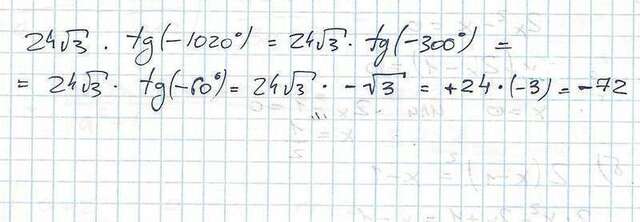 24√3 · tg(-1020°) = 24√3 · tg(-300°) =
= 24√3 · tg(-60°) = 24√3 · -√3 = +24 · (-3) = -72